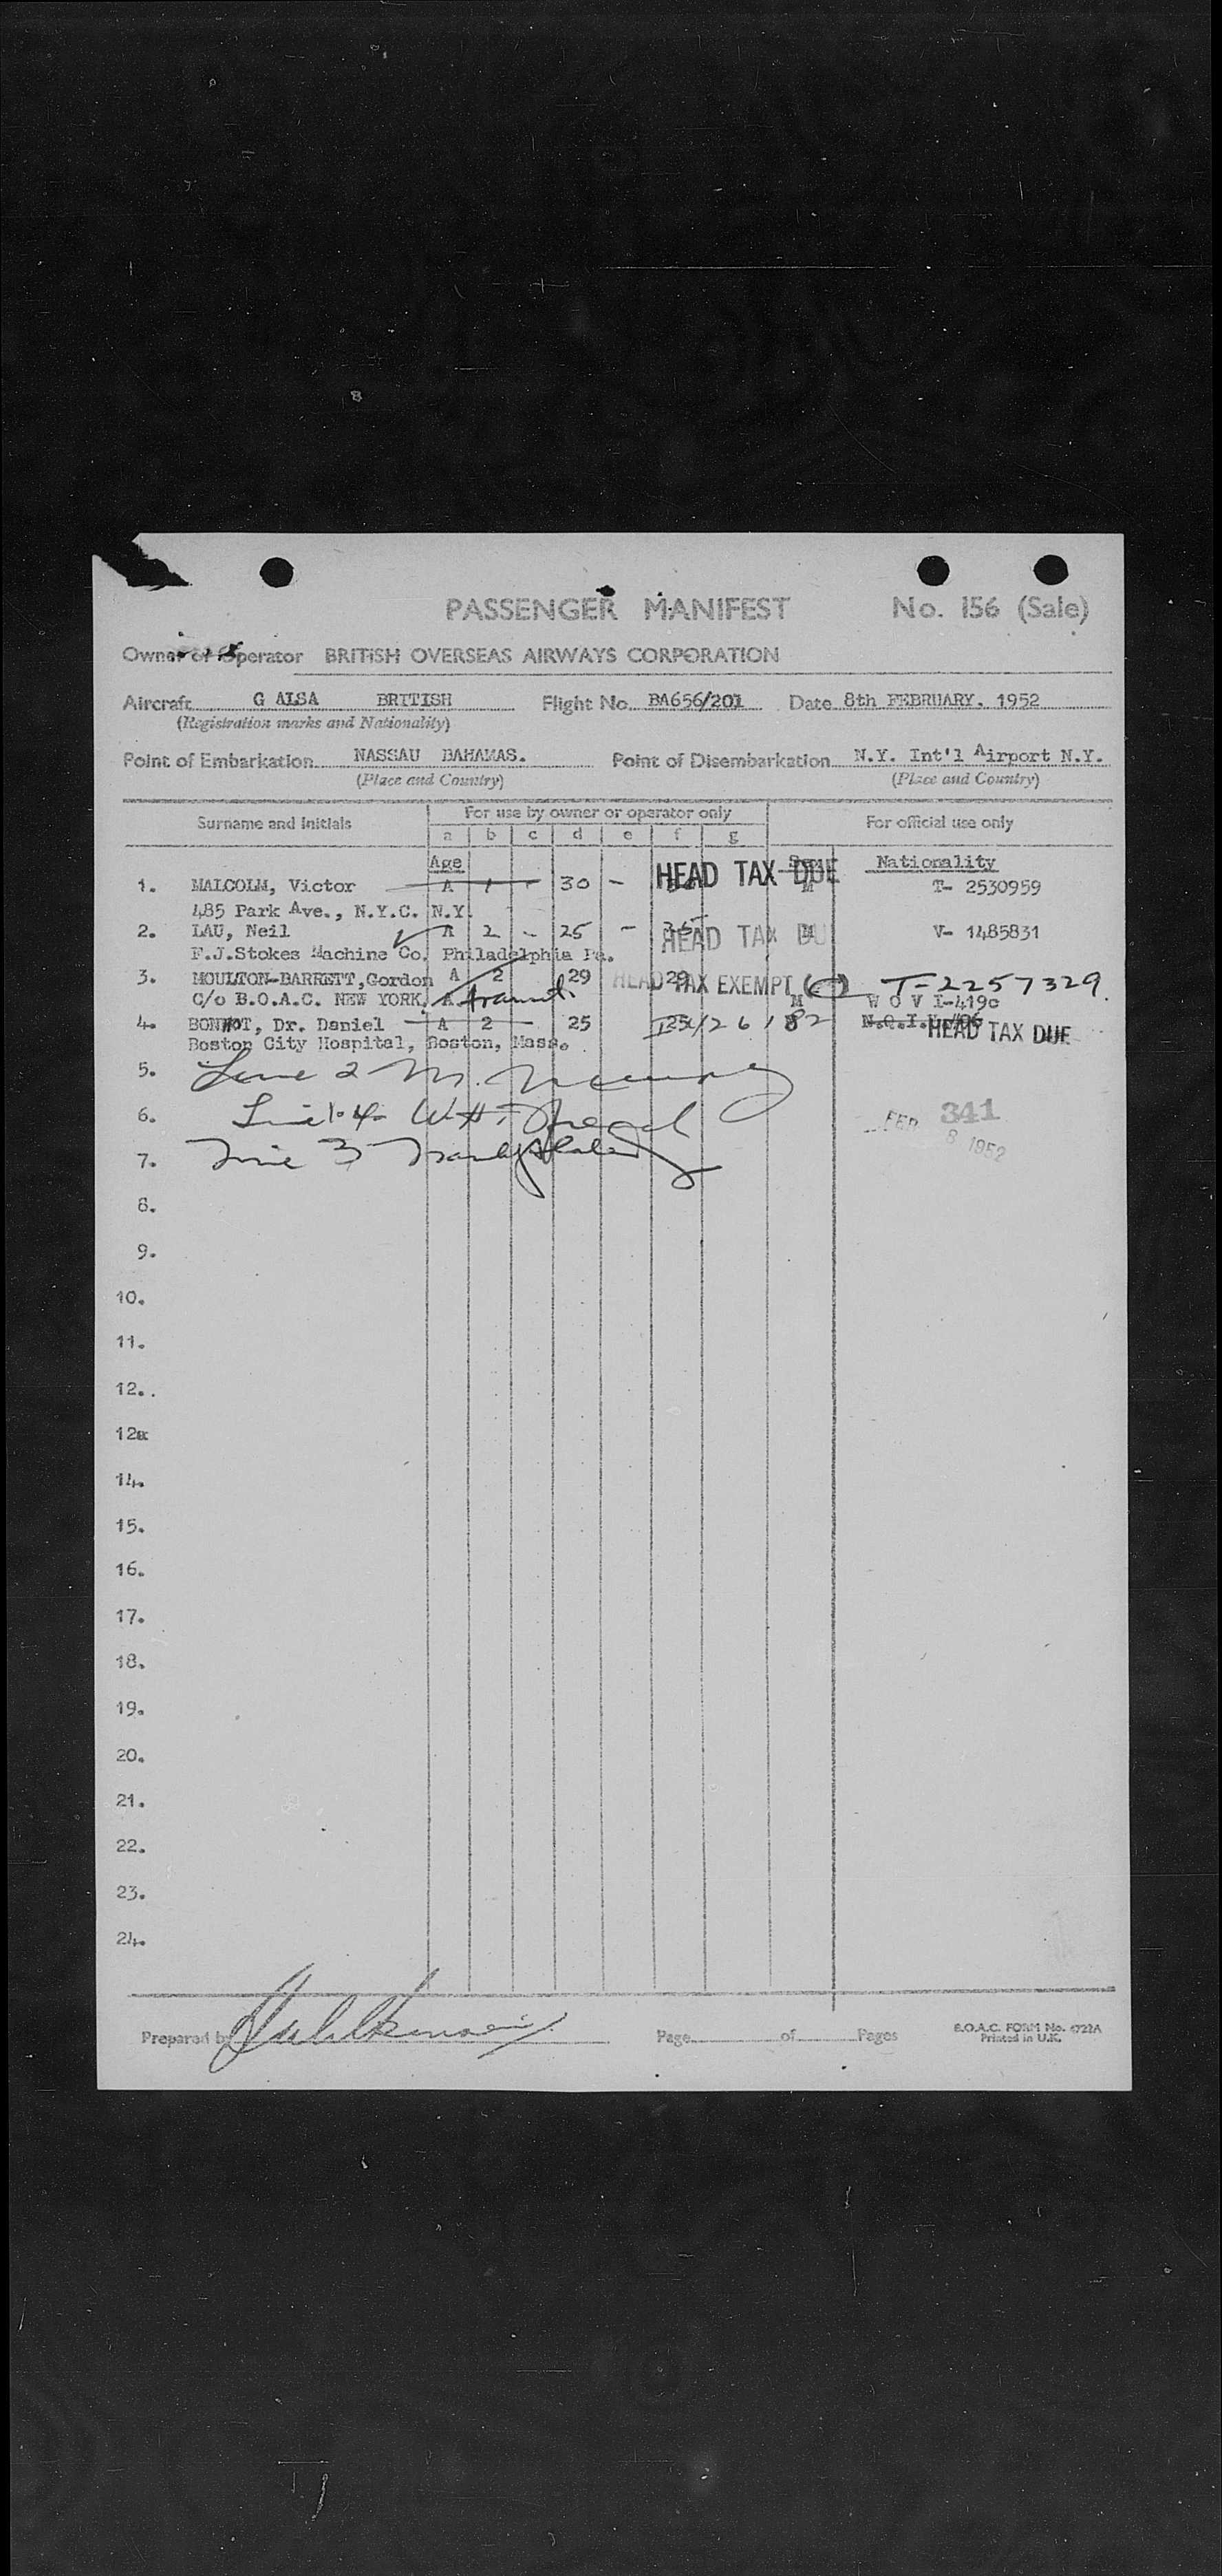 PASSENGER MANIFEST No. 156 (Sale)
Owner or Operator BRITISH OVERSEAS AIRWAYS CORPORATION
Aircraft G ALSA BRITISH Flight No. BA656/201 Date 8th FEBRUARY. 1952
(Registration marks and Nationality)
Point of Embarkation NASSAU BAHAMAS. Point of Disembarkation N.Y. Int'l Airport N.Y.
(Place and Country) (Place and Country)
Surname and Initials For use by owner or operator only For official use only
a b c d e f g
Age Nationality
1. MALCOLM, Victor A 1 - 30 - HEAD TAX DUE M T- 2530959
485 Park Ave., N.Y.C. N.Y.
2. LAU, Neil A 2 - 25 - HEAD TAX DU M V- 1485831
F.J.Stokes Machine Co. Philadelphia Pa.
3. MOULTON-BARRETT,Gordon A 2 29 29 HEAD TAX EXEMPT T-2257329.
C/o B.O.A.C. NEW YORK. transit. M W O V I-419c
4. BONNOT, Dr. Daniel A 2 - 25 HEAD TAX DUE
Boston City Hospital, Boston, Mass.
5. Line 2 M.
6. Line 1-4 W.H.
7. Line 3
341
FEB 8 1952
8.
9.
10.
11.
12.
12a
14.
15.
16.
17.
18.
19.
20.
21.
22.
23.
24.
Prepared by Page of Pages B.O.A.C. FORM No. 4722A
Printed in U.K.